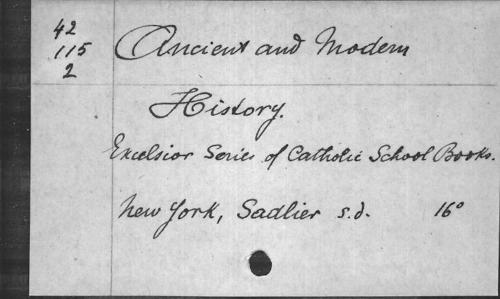 42
115
2
Ancient and Modern
History.
Excelsior Series of Catholic School Books.
New York, Sadlier s.d. 16°